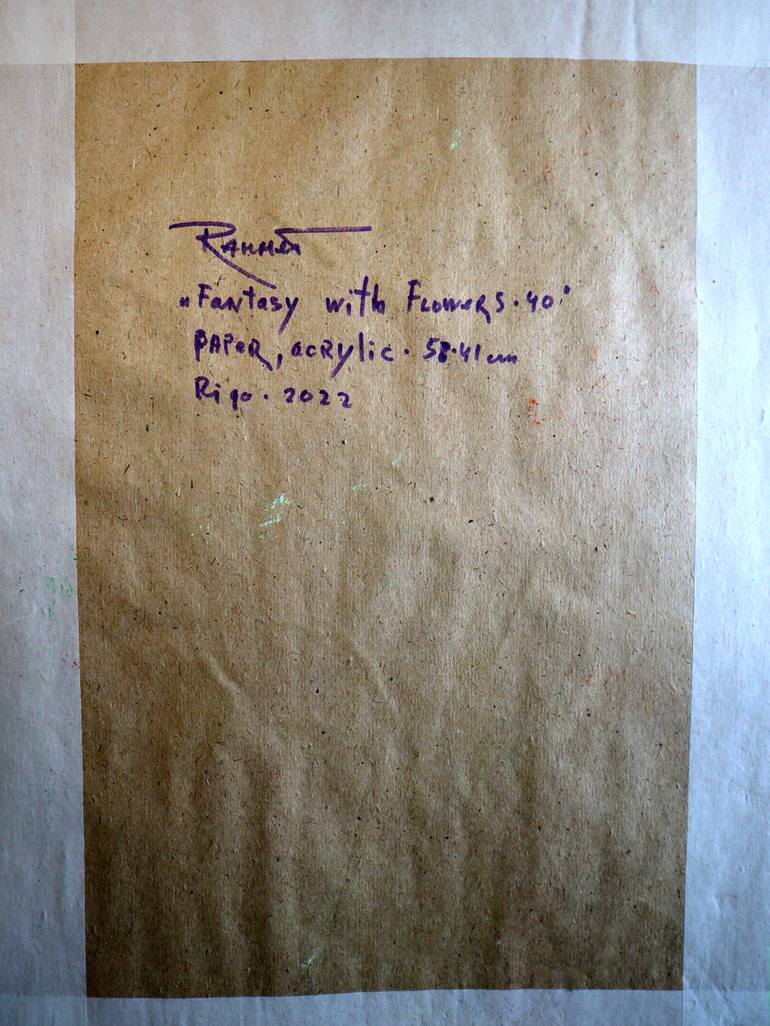 Rahmet
„Fantasy with Flowers · 40"
PAPeR, acRylic · 58·41 cm
Riga · 2022